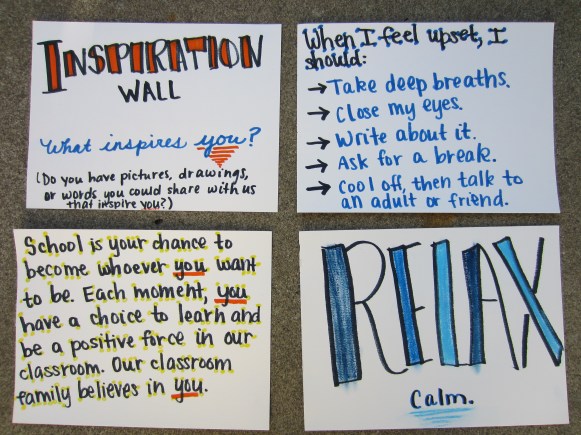 INSPIRATION
WALL
What inspires you?
(Do you have pictures, drawings,
or words you could share with us
that inspire you?)
When I feel upset, I
should:
→ Take deep breaths.
→ Close my eyes.
→ Write about it.
→ Ask for a break.
→ Cool off, then talk to
an adult or friend.
School is your chance to
become whoever you want
to be. Each moment, you
have a choice to learn and
be a positive force in our
classroom. Our classroom
family believes in you.
RELAX
Calm.